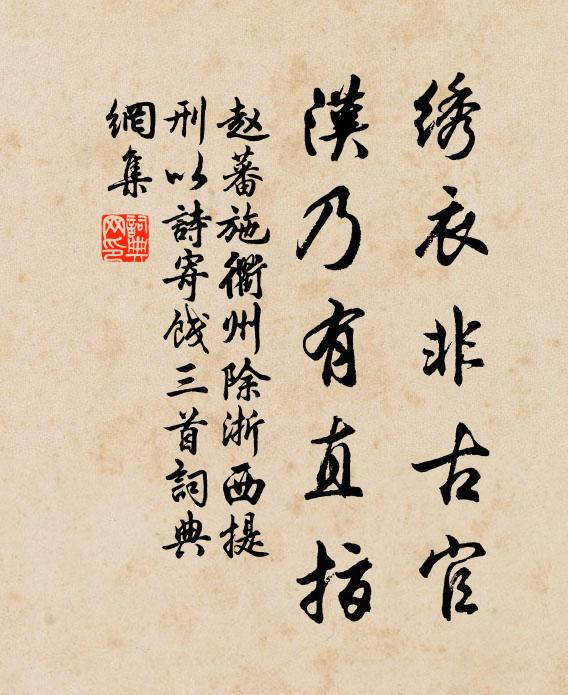 绣衣非古官
漢乃有直指
赵蕃施衢州除浙西提
刑以詩寄餞三首詞典
網集
詞典
网印